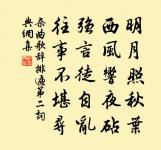 明月照秋葉
西風響夜砧
強言徒自亂
往事不堪尋
杂曲歌辭排遍第二詞
典網集